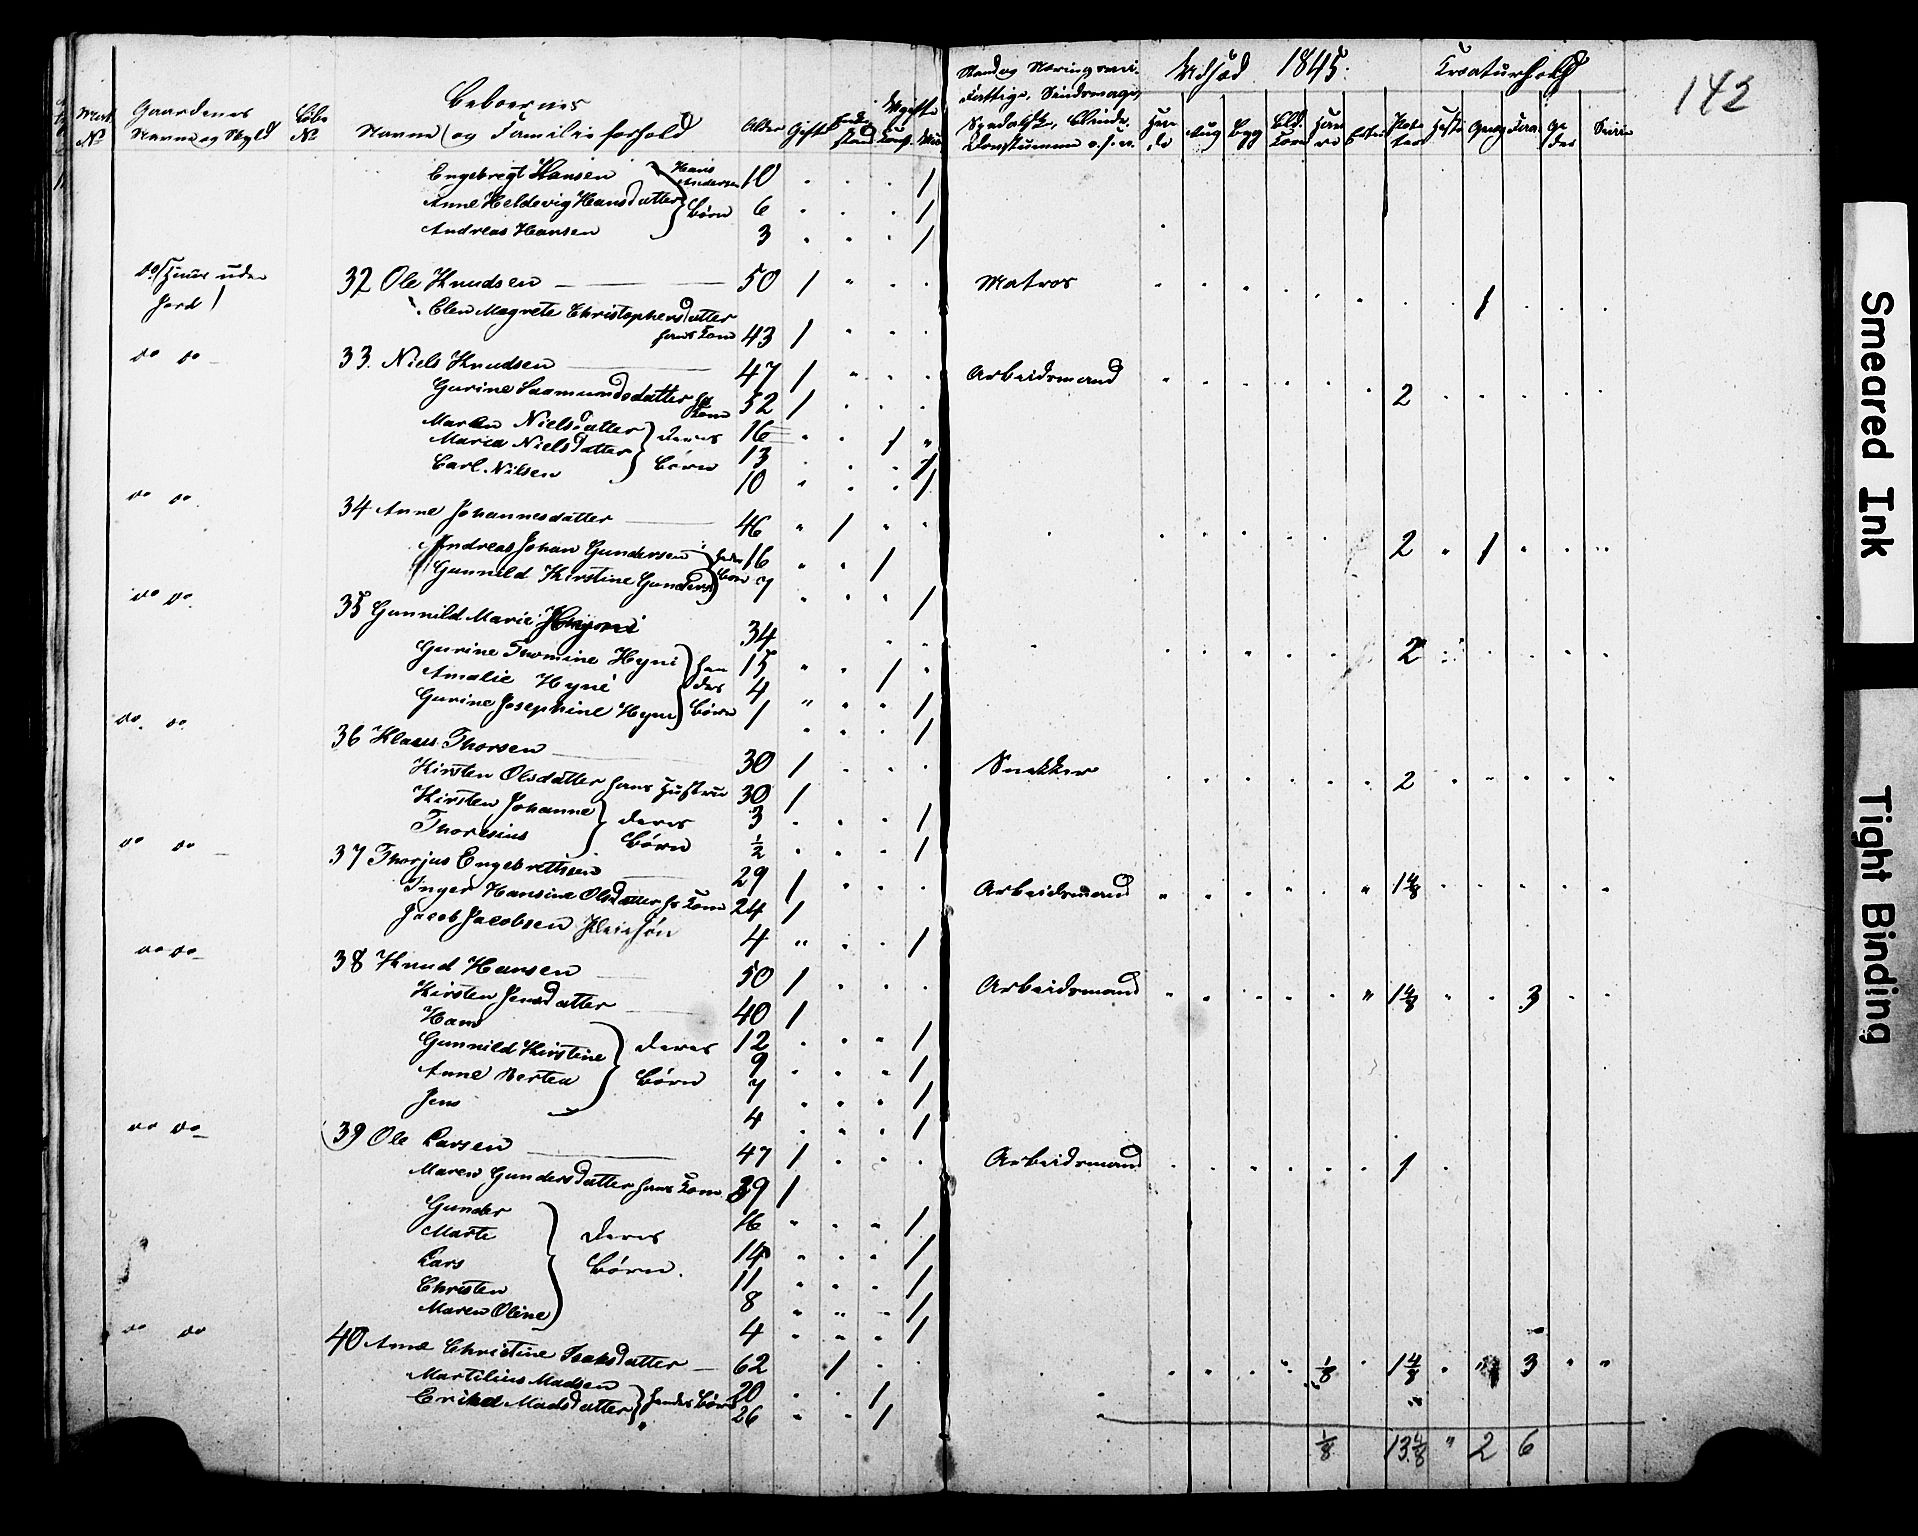 142
Udsæd 1845. Kreaturhold
Matr No Gaardenes Navne og Skyld Løbe No Beboernes Navne og Familieforhold Alder Gift Ugifte
Engebregt Hansen Hans Andersen 10 . . . 1
Anne Heldevig Hansdatter Børn 6 . . . 1
Andreas Hansen 3 . . . 1
do (Huus uden Jord) 32 Ole Knudsen 50 1 Matros 1
Elen Magrete Christophersdatter hans Kone 43 1
do do 33. Niels Knudsen 47 1 Arbeidsmand 2
Gurine Saamundsdatter hs Kone 52 1
Maren Nielsdatter 16 1
Maria Nielsdatter deres Børn 13 1
Carl Nilsen 10 1
do do 34 Anne Johannesdatter 46 1 2 1
Andreas Johan Gundersen 16 1
Gunnild Kirstine Gunders Børn 7 1
do do 35 Gunnild Marie 34 2
Gurine Thomine Hyne 15 1
Amalie Hyne hendes 4 1
Gurine Josephine Hyne Børn 1 1
do do 36 Klaus Thorsen 30 1 Snekker 2
Kirsten Olsdatter hans Hustrue 30 1
Kirsten Johanne deres 3 1
Thoresius Børn 1/2 1
do do 37 Thorjus Engebrethsen 29 1 Arbeidsmand 1 4/8
Inger Hansine Olsdatter hs Kone 24 1
Jacob Jacobsen Pleiesøn 4 1
do do 38 Knud Hansen 50 1 Arbeidsmand 1 4/8 3
Kirsten Jensdatter 40 1
Hans 12 1
Gunnild Kirstine deres 9 1
Anne Bertea Børn 7 1
Jens 4 1
do do 39 Ole Larsen 47 1 Arbeidsmand 1
Maren Gundersdatter hans Kone 39 1
Gunder 16 1
Marte deres 14 1
Lars Børn. 11 1
Christen 8 1
Maren Oline 4 1
do do 40 Anne Christine Isaksdatter 62 1 1/8 1 4/8 3
Martilius Madsen 20 1
Madsdatter hendes Børn 26 1
1/8 13 4/8 " 2 6
Smeared Ink
Tight Binding